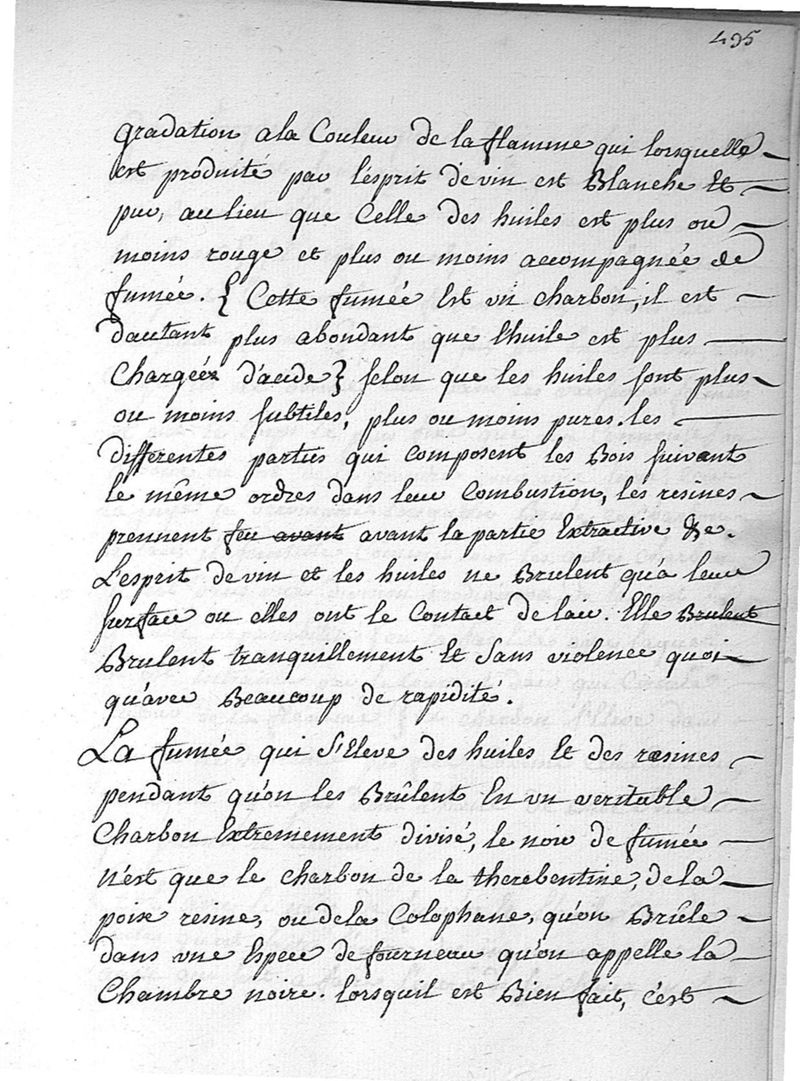 495
gradation a la Couleur de la flamme qui lorsquelle
est produite par l'esprit de vin est Blanche Et
pur, au lieu que Celle des huiles est plus ou
moins rouge et plus ou moins accompagnée de
fumée. { Cette fumée Est un charbon, il est
dautant plus abondant que l'huile est plus
Chargéer d'acide } selon que les huiles sont plus
ou moins subtiles, plus ou moins pures. les
differentes parties qui composent les Bois suivent
le même ordres dans leur Combustion, les resines
prennent feu avant avant la partie Extractive &c.
L'esprit de vin et les huiles ne Brulent qu'a leur
surface ou elles ont le Contact de l'air. Elle Brulent
Brulent tranquillement Et Sans violence quoi
qu'avec Beaucoup de rapidité.
La fumée qui S'Eleve des huiles Et des resines
pendant qu'on les Brûlent En un veritable
Charbon Extremement divisé, le noir de fumée
n'est que le charbon de la therebentine, de la
poix resine, ou de la Colophane, qu'on Brûle
dans une Espece de fourneau qu'on appelle la
Chambre noire. lorsquil est Bien fait, c'est